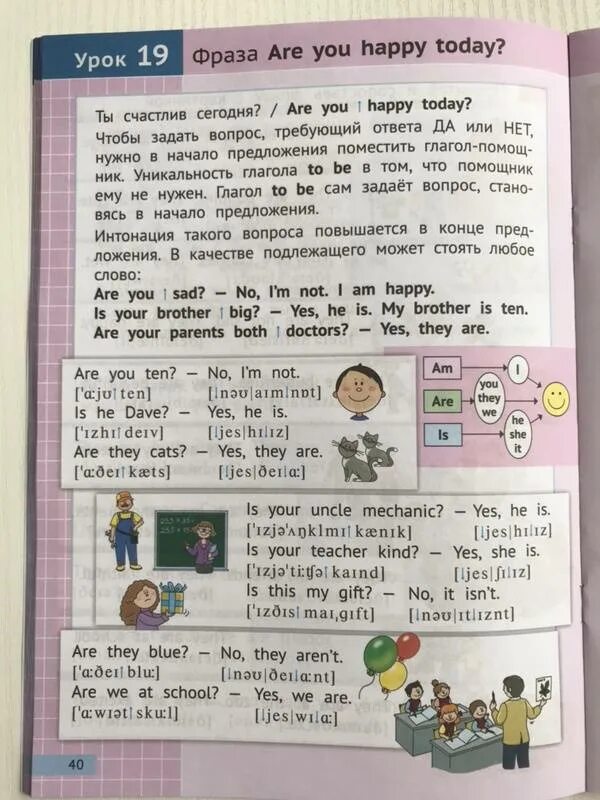 Урок 19 Фраза Are you happy today?
Ты счастлив сегодня? / Are you ↑ happy today?
Чтобы задать вопрос, требующий ответа ДА или НЕТ,
нужно в начало предложения поместить глагол-помощ-
ник. Уникальность глагола to be в том, что помощник
ему не нужен. Глагол to be сам задаёт вопрос, стано-
вясь в начало предложения.
Интонация такого вопроса повышается в конце пред-
ложения. В качестве подлежащего может стоять любое
слово:
Are you ↑ sad? – No, I'm not. I am happy.
Is your brother ↑ big? – Yes, he is. My brother is ten.
Are your parents both ↑ doctors? – Yes, they are.
Are you ten? – No, I'm not.
['ɑ:jʊ↑ten] [↓nəʊ|aɪm↓nɒt]
Is he Dave? – Yes, he is.
['ɪzhɪ↑deɪv] [↓jes|hɪ↓ɪz]
Are they cats? – Yes, they are.
['ɑ:ðeɪ↑kæts] [↓jes|ðeɪ↓ɑ:]
Am
I
Are
you
they
we
Is
he
she
it
Is your uncle mechanic? – Yes, he is.
['ɪzjə'ʌŋklmɪ↑kænɪk] [↓jes|hɪ↓ɪz]
Is your teacher kind? – Yes, she is.
['ɪzjə'ti:ʧə↑kaɪnd] [↓jes|ʃɪ↓ɪz]
Is this my gift? – No, it isn't.
['ɪzðɪs↑maɪˌgɪft] [↓nəʊ|ɪt↓ɪznt]
Are they blue? – No, they aren't.
['ɑ:ðeɪ↑blu:] [↓nəʊ|ðeɪ↓ɑ:nt]
Are we at school? – Yes, we are.
['ɑ:wɪət↑sku:l] [↓jes|wɪ↓ɑ:]
40